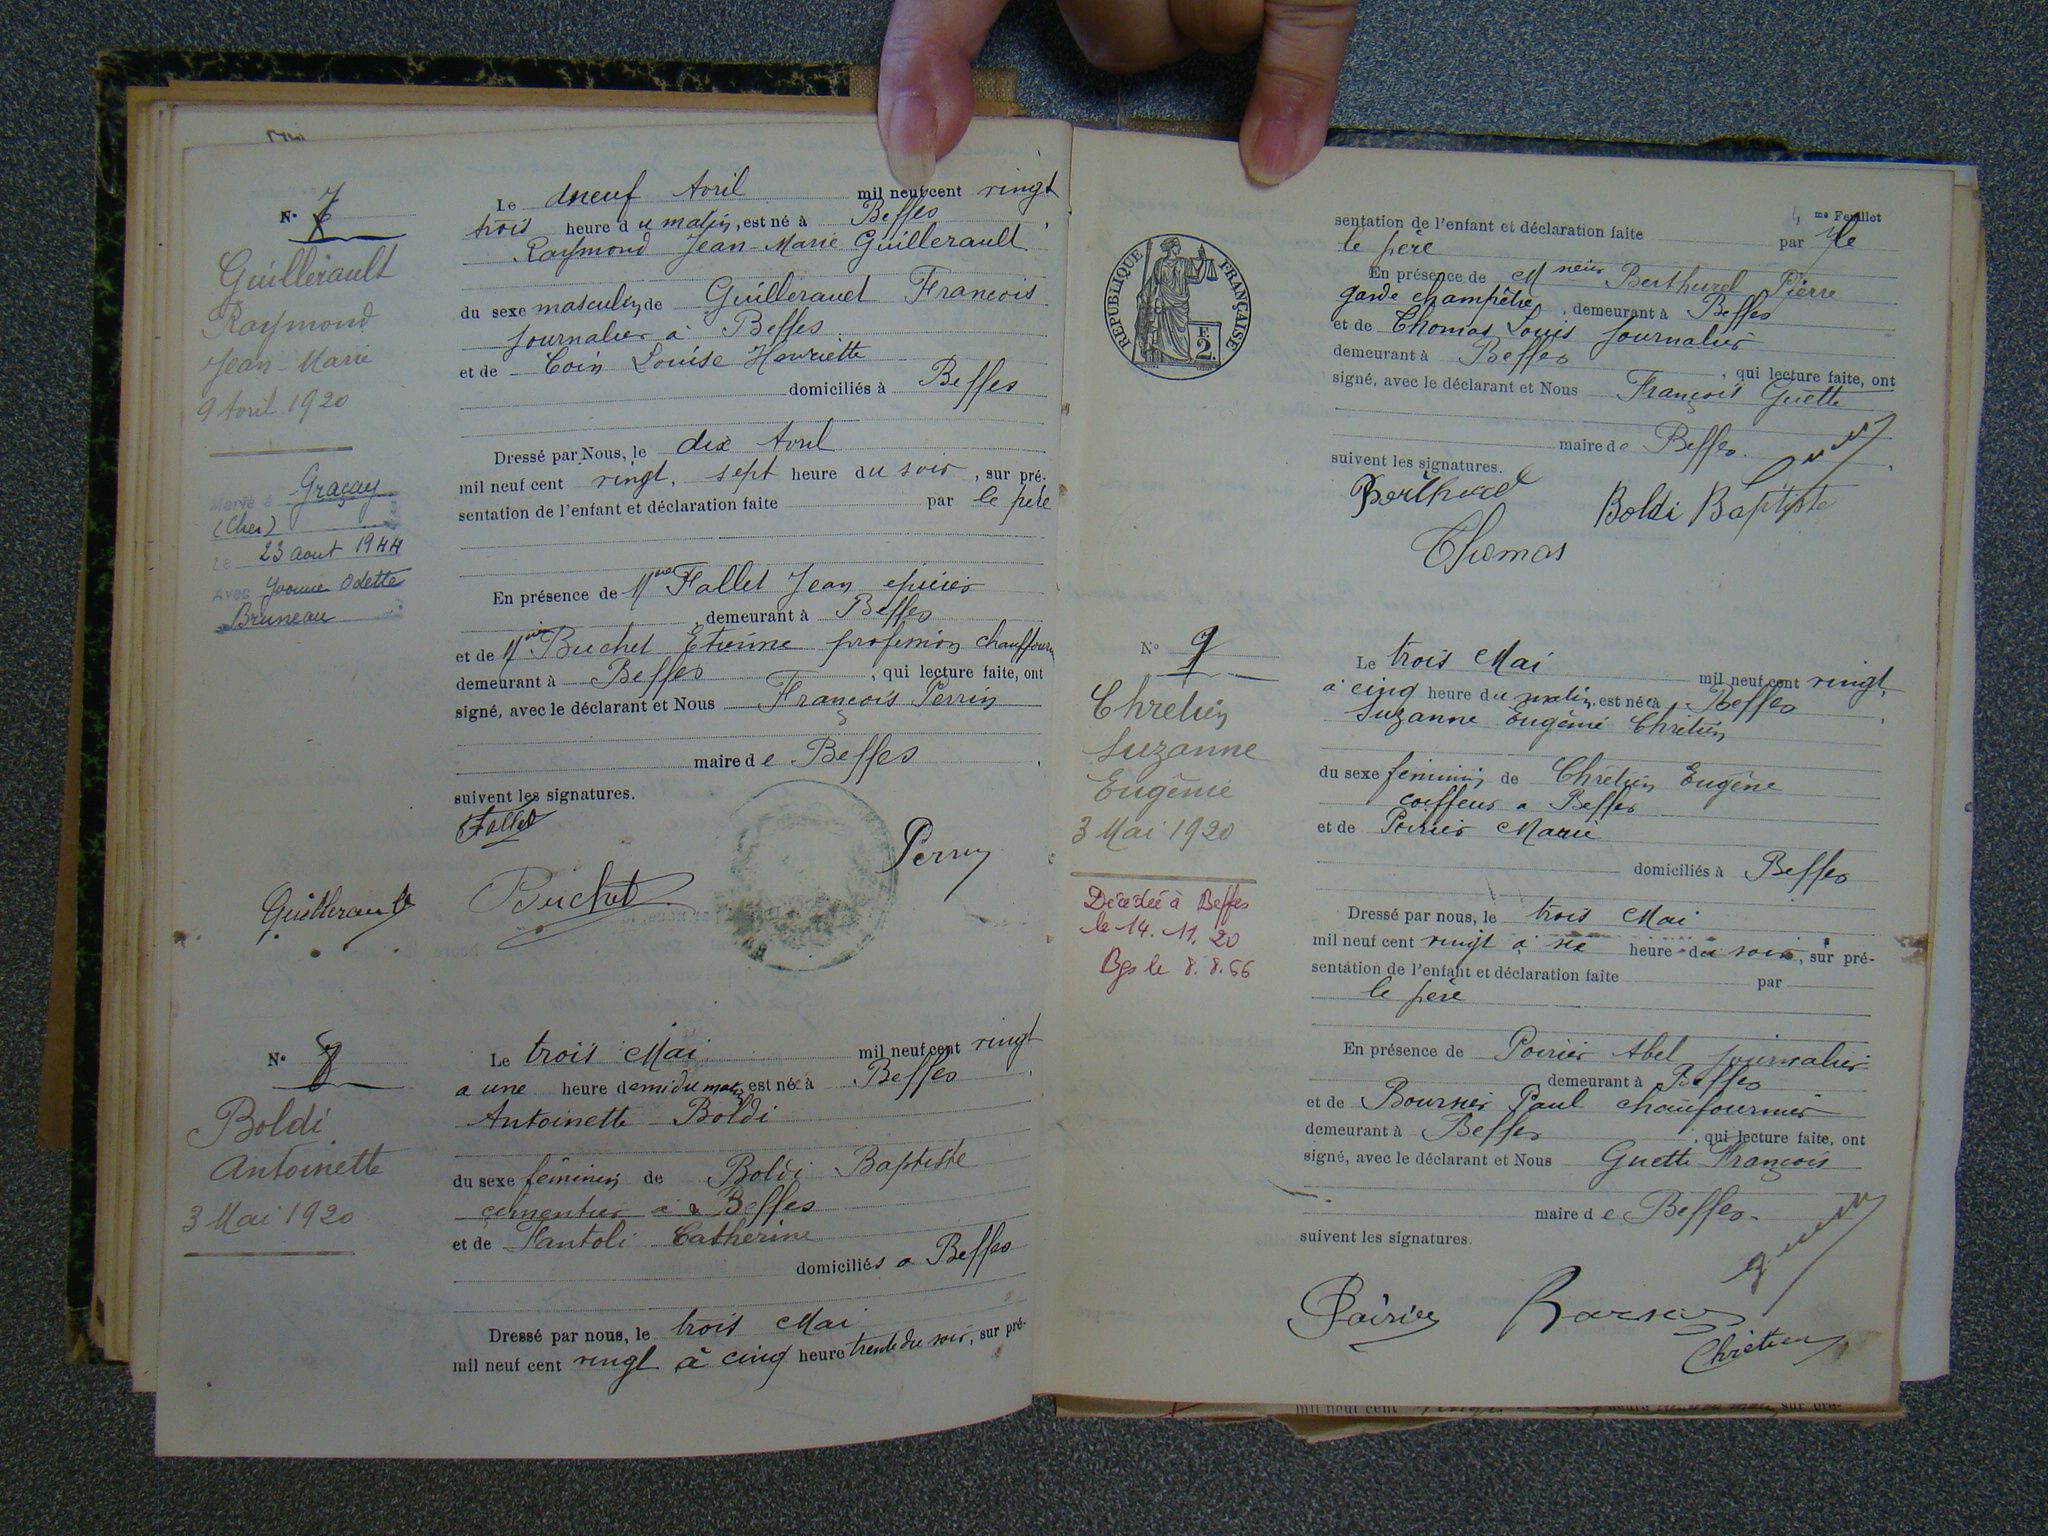 N° 7
Guillerault
Raymond
Jean-Marie
9 Avril 1920
Marié à Graçay
(Cher)
Le 23 aout 1944
Avec Yvonne Odette
Bruneau
Le neuf Avril mil neuf cent vingt
trois heure du matin, est né à Beffes
Raymond Jean-Marie Guillerault
du sexe masculin de Guillerault François
journalier à Beffes
et de Coin Louise Henriette
domiciliés à Beffes
Dressé par Nous, le dix Avril
mil neuf cent vingt, sept heure du soir, sur pré-
sentation de l'enfant et déclaration faite par le père
En présence de Fallet Jean épicier
demeurant à Beffes
et de Buchet Etienne profession chauffourn
demeurant à Beffes, qui lecture faite, ont
signé, avec le déclarant et Nous François Perrin
maire de Beffes
suivent les signatures.
Fallet
Perrin
Guillerault Buchet
N° 8
Boldi
Antoinette
3 Mai 1920
Le trois Mai mil neuf cent vingt
a une heure demi du matin, est née à Beffes
Antoinette Boldi
du sexe féminin de Boldi Baptiste
cimentier à Beffes
et de Fantoli Catherine
domiciliés a Beffes
Dressé par nous, le trois Mai
mil neuf cent vingt à cinq heure trente du soir, sur pré-
4me Feuillet
sentation de l'enfant et déclaration faite par
le père
En présence de Mneier Berthurel Pierre
garde champêtre, demeurant à Beffes
et de Thomas Louis journalier
demeurant à Beffes, qui lecture faite, ont
signé, avec le déclarant et Nous François Guette
maire de Beffes
suivent les signatures.
RÉPUBLIQUE FRANÇAISE
E
2.
Boldi Baptiste
Thomas
N° 9
Chretien
Suzanne
Eugénie
3 Mai 1920
Décédée à Beffes
le 14. 11. 20
Bgs le 8. 8. 66
Le trois Mai mil neuf cent vingt,
à cinq heure du matin, est née à Beffes
Suzanne Eugénie Chrétien
du sexe féminin de Chrétien Eugène
coiffeur a Beffes
et de Poirier Marie
domiciliés à Beffes
Dressé par nous, le trois Mai
mil neuf cent vingt à six heure du soir, sur pré-
sentation de l'enfant et déclaration faite par
le père
En présence de Poirier Abel journalier
demeurant à Beffes
et de Bournier Paul chaufournier
demeurant à Beffes, qui lecture faite, ont
signé, avec le déclarant et Nous Guette François
maire de Beffes
suivent les signatures.
Poirier
Chrétien
mil neuf cent